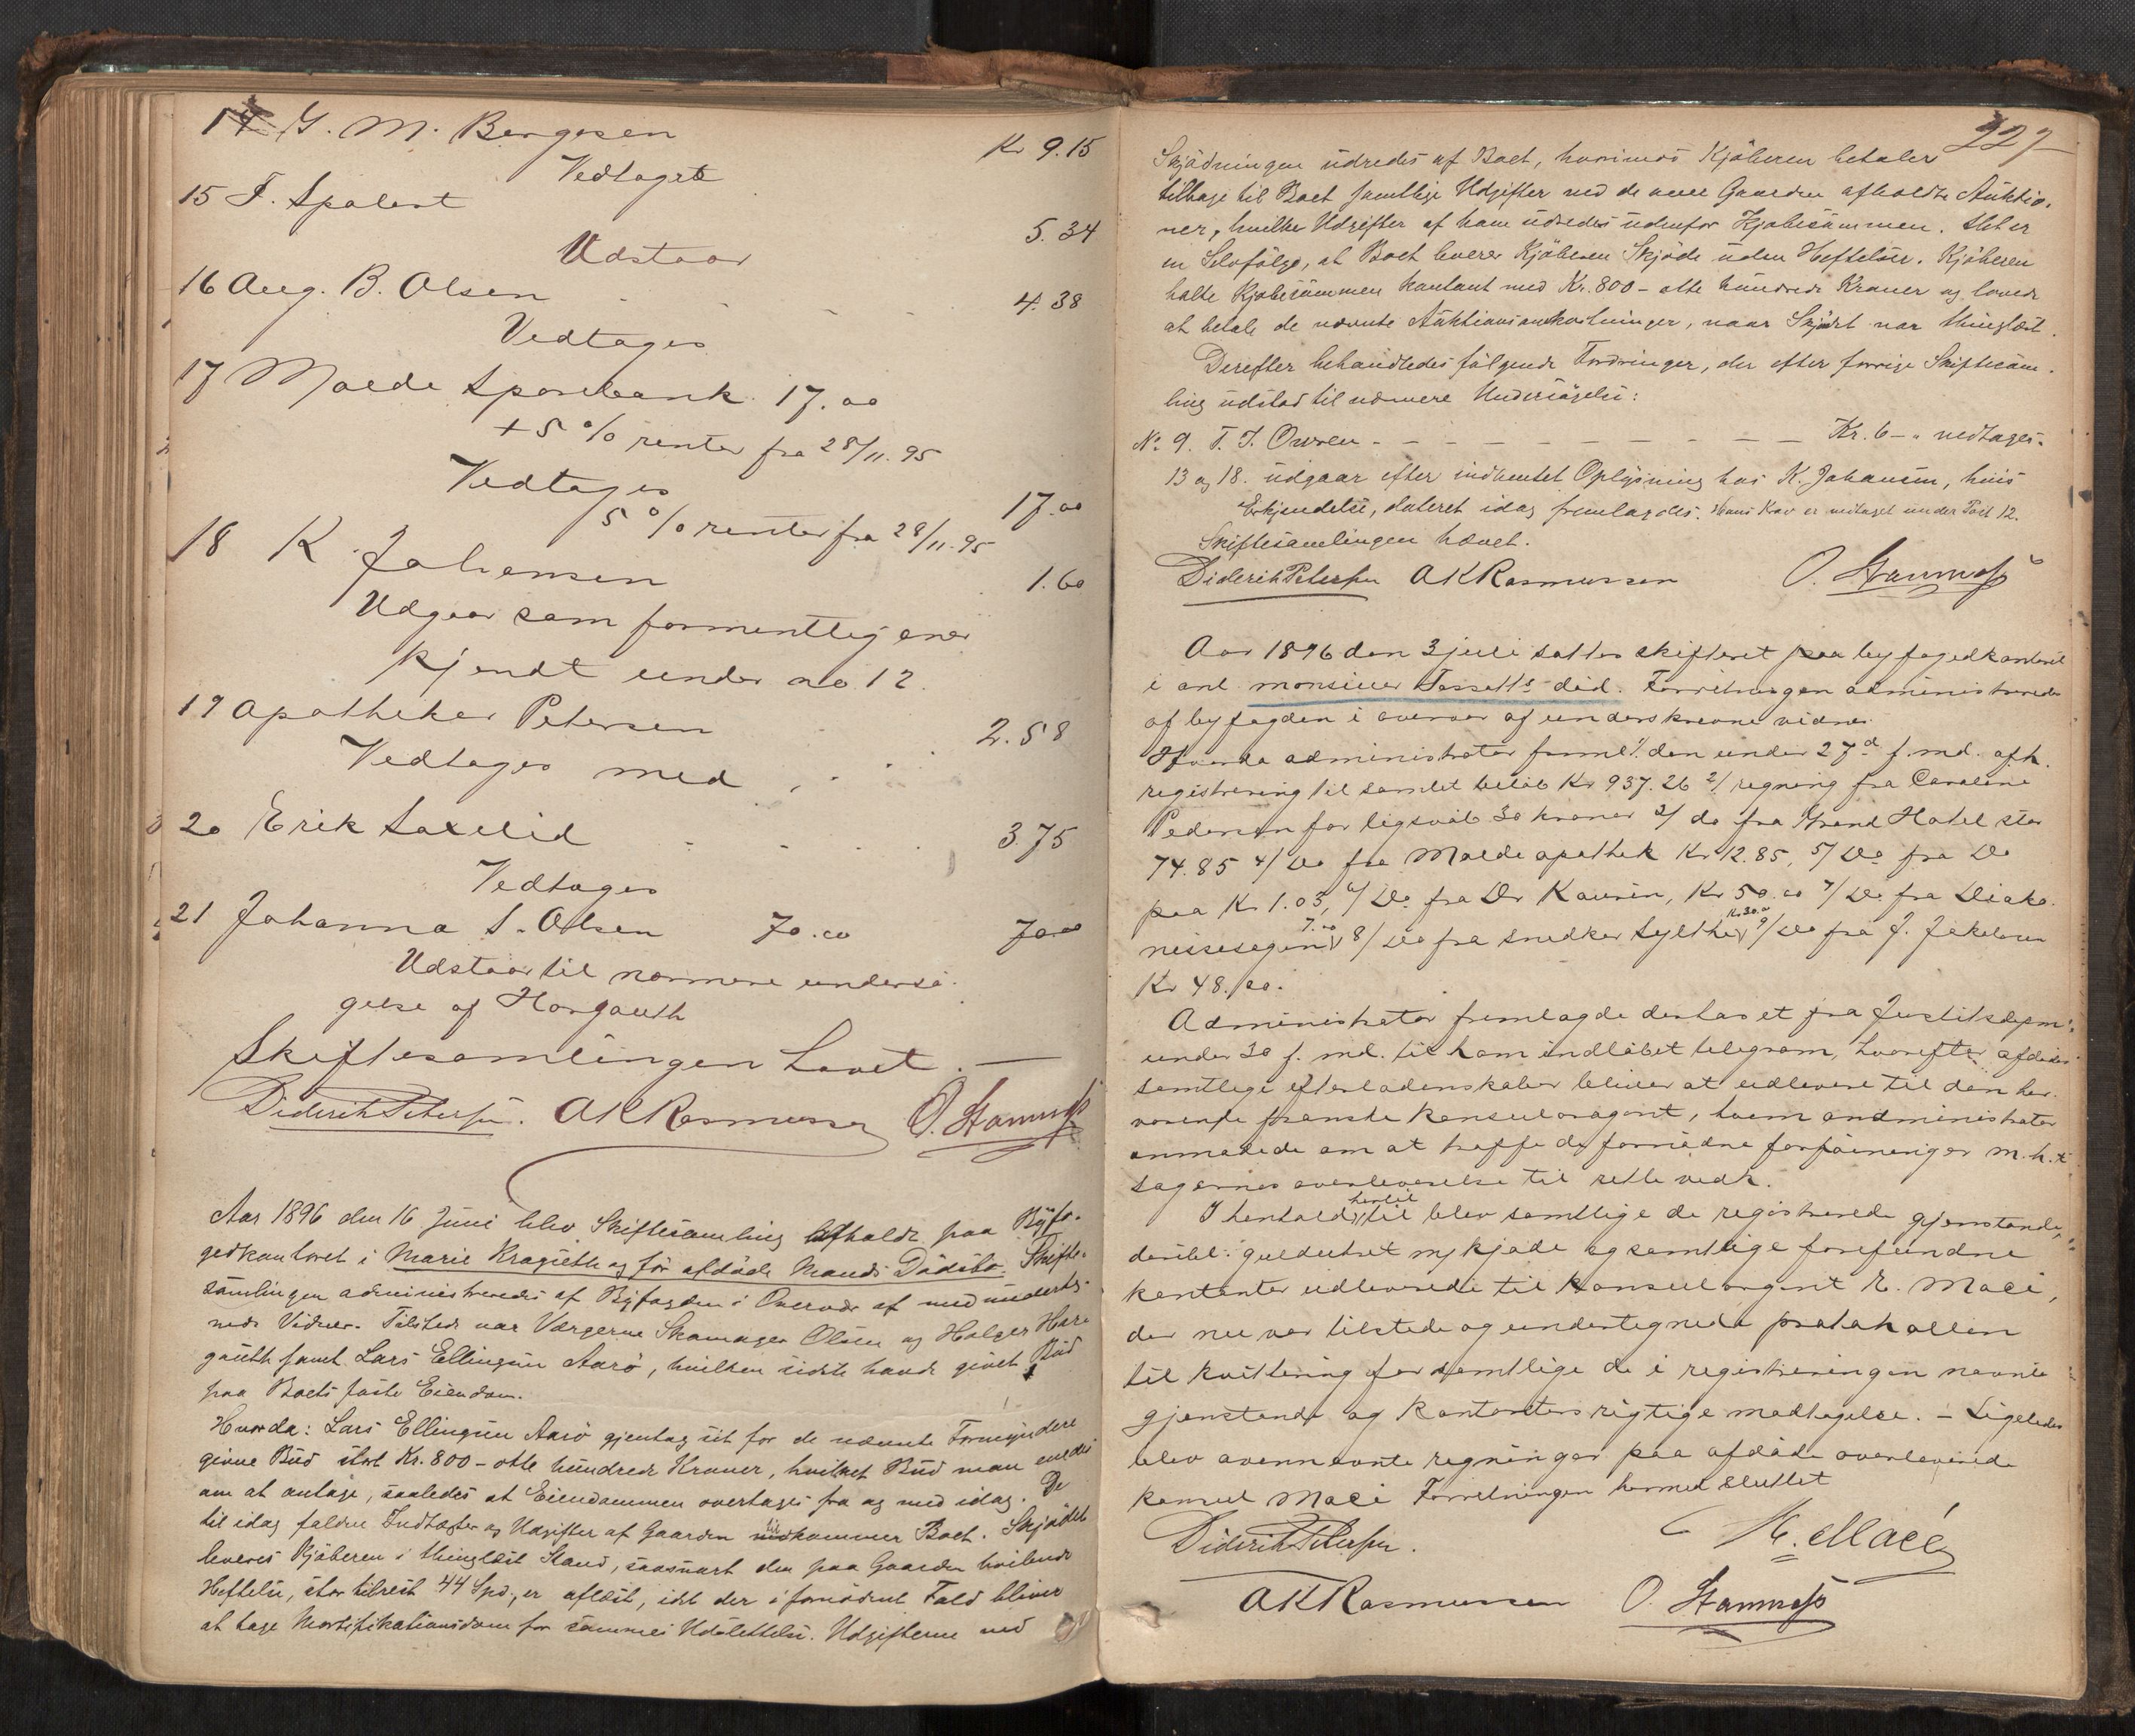 14 G. M. Bergesen Kr 9.15
Vedtages
15 T. Spolert 5.34
Udstaar
16 Aug. B. Olsen 4.38
Vedtages
17 Molde Sparebank 17.00
+ 5 % renter fra 28/11.95
Vedtages 17.00
5 % renter fra 28/11.95
18 K Johansen 1.60
Udgaar som formentlig aner
kjendt under no 12.
19 Apotheker Petersen 2.58
Vedtages med
20 Erik Saxelid 3.75
Vedtages
21 Johanna S. Olsen 70.00 70.00
Udstaar til nærmere undersø
gelse af Hargauth
Skiftesamlingen hævet. —
Diderik Petersen. AKRasmussen O. Stamnæss
Aar 1896 den 16 Juni blev Skiftesamling afholdt paa Byfo-
gedkontoret i Marie Kragseth og før afdøde Mands Dødsbo. Skifte-
samlingen administreredes af Byfogden i Overvær af med underteg-
nede Vidner. Tilstede var Værgerne Skomager Olsen og Holger Har
gauth samt Lars Ellingsen Aarø, hvilken sidste havde givet Bud
paa Boets faste Eiendom.
Hvorda: Lars Ellingsen Aarø gjentog sit for de nævnte Formyndere
givne Bud stort Kr. 800 – otte hundrede Kroner, hvilket Bud man enedes
om at antage, saaledes at Eiendommen overtages fra og med idag. De
til idag faldne Indtægter og Udgifter af Gaarden tilkommer Boet. Skjødet
leveres Kjøberen i thinglæst Stand, saasnart den paa Gaarden hvilende
Heftelse, stor tilrest 44 Spd., er aflæst, idet der i fornødent Fald bliver
at tage Mortifikationsdom for sammes Udslettelse. Udgifterne ved
227
Skjødningen udredes af Boet, hvorimod Kjøberen betaler
tilbage til Boet samtlige Udgifter ved de over Gaarden afholdte Auktio-
ner, hvilke Udgifter af ham udredes udenfor Kjøbesummen. Det er
en Selvfølge, at Boet leverer Kjøberen Skjøde uden Heftelser. Kjøberen
kontant med Kr. 800 – otte hundrede Kroner og lovede
at betale de nævnte Auktionsomkostninger, naar Skjødet var thinglæst.
Derefter behandledes følgende Fordringer, der efter forrige Skiftesam-
ling udstod til nærmere Undersøgelse:
No 9. T. J. Owren – – – – – – – – – – Kr. 6 – " vedtages.
13 og 18. udgaar efter indhentet Oplysning hos K. Johansen, hvis
Erkjendelse, dateret idag fremlagdes. Hans Krav er vedtaget under Post 12.
Skiftesamlingen hævet.
Diderik Petersen AKRasmussen O. Stamnæss
Aar 1896 den 3 juli sattes skifteret paa byfogedkontoret
i anl. monsieur Tassetts død. Forretningen administreredes
af byfogden i overvær af underskrevne vidner.
Hvorda administrator freml. 1/ den under 27d f. md. afh.
registrering til samlet beløb Kr 937.26 2/ regning fra Caroline
Pedersen for ligsvøb 30 kroner 3/ do fra Grand Hotel stor
74.85 4/ Do fra Molde apothek Kr 12.85, 5/ Do fra Do
paa Kr 1.03, 6/ Do fra Dr Kaurin, Kr 50.00 7/ Do fra Diako-
nissesagen 7.00 8/ Do fra snedker Sylthe Kr 30.00 9/ Do fra J. Jakobsen
Kr 48.00.
Administrator fremlagde derhos et fra Justitsdepm:
under 30 f. md. til ham indløbet telegram, hvorefter afdødes
samtlige efterladenskaber bliver at udlevere til den her-
værende franske konsularagent, hvem administrator
anmodede om at treffe de fornødne forføininger m.h.t.
sagernes overleverelse til rette vedk.
I henhold hertil blev samtlige de registrerede gjenstande,
deribl. gulduhret m/ kjæde og samtlige forefundne
kontanter udleverede til Konsularagent H. Macé,
der nu var tilstede og undertegnede protokollen
til kvittering for samtlige de i registreringen nævnte
gjenstande og kontanters rigtige modtagelse. – Ligeledes
blev ovennævnte regninger paa afdøde overleverede
konsul Macé Forretningen hermed sluttet
Diderik Petersen. H. Macé
AKRasmussen O. Stamnæss